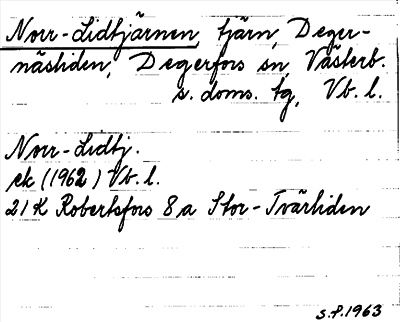 Norr-Lidtjärnen, tjärn, Deger-
näsliden, Degerfors sn, Västerb.
s. doms. tg, Vb. l.
Norr-Lidtj.
ek (1962) Vb. l.
21 K Robertsfors 8 a Stor-Tvärliden
S.P.1963